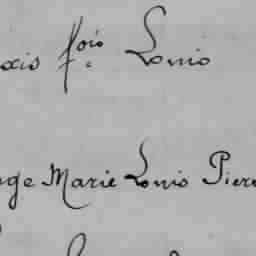 xis fois Louis
nge Marie Louis Pierr